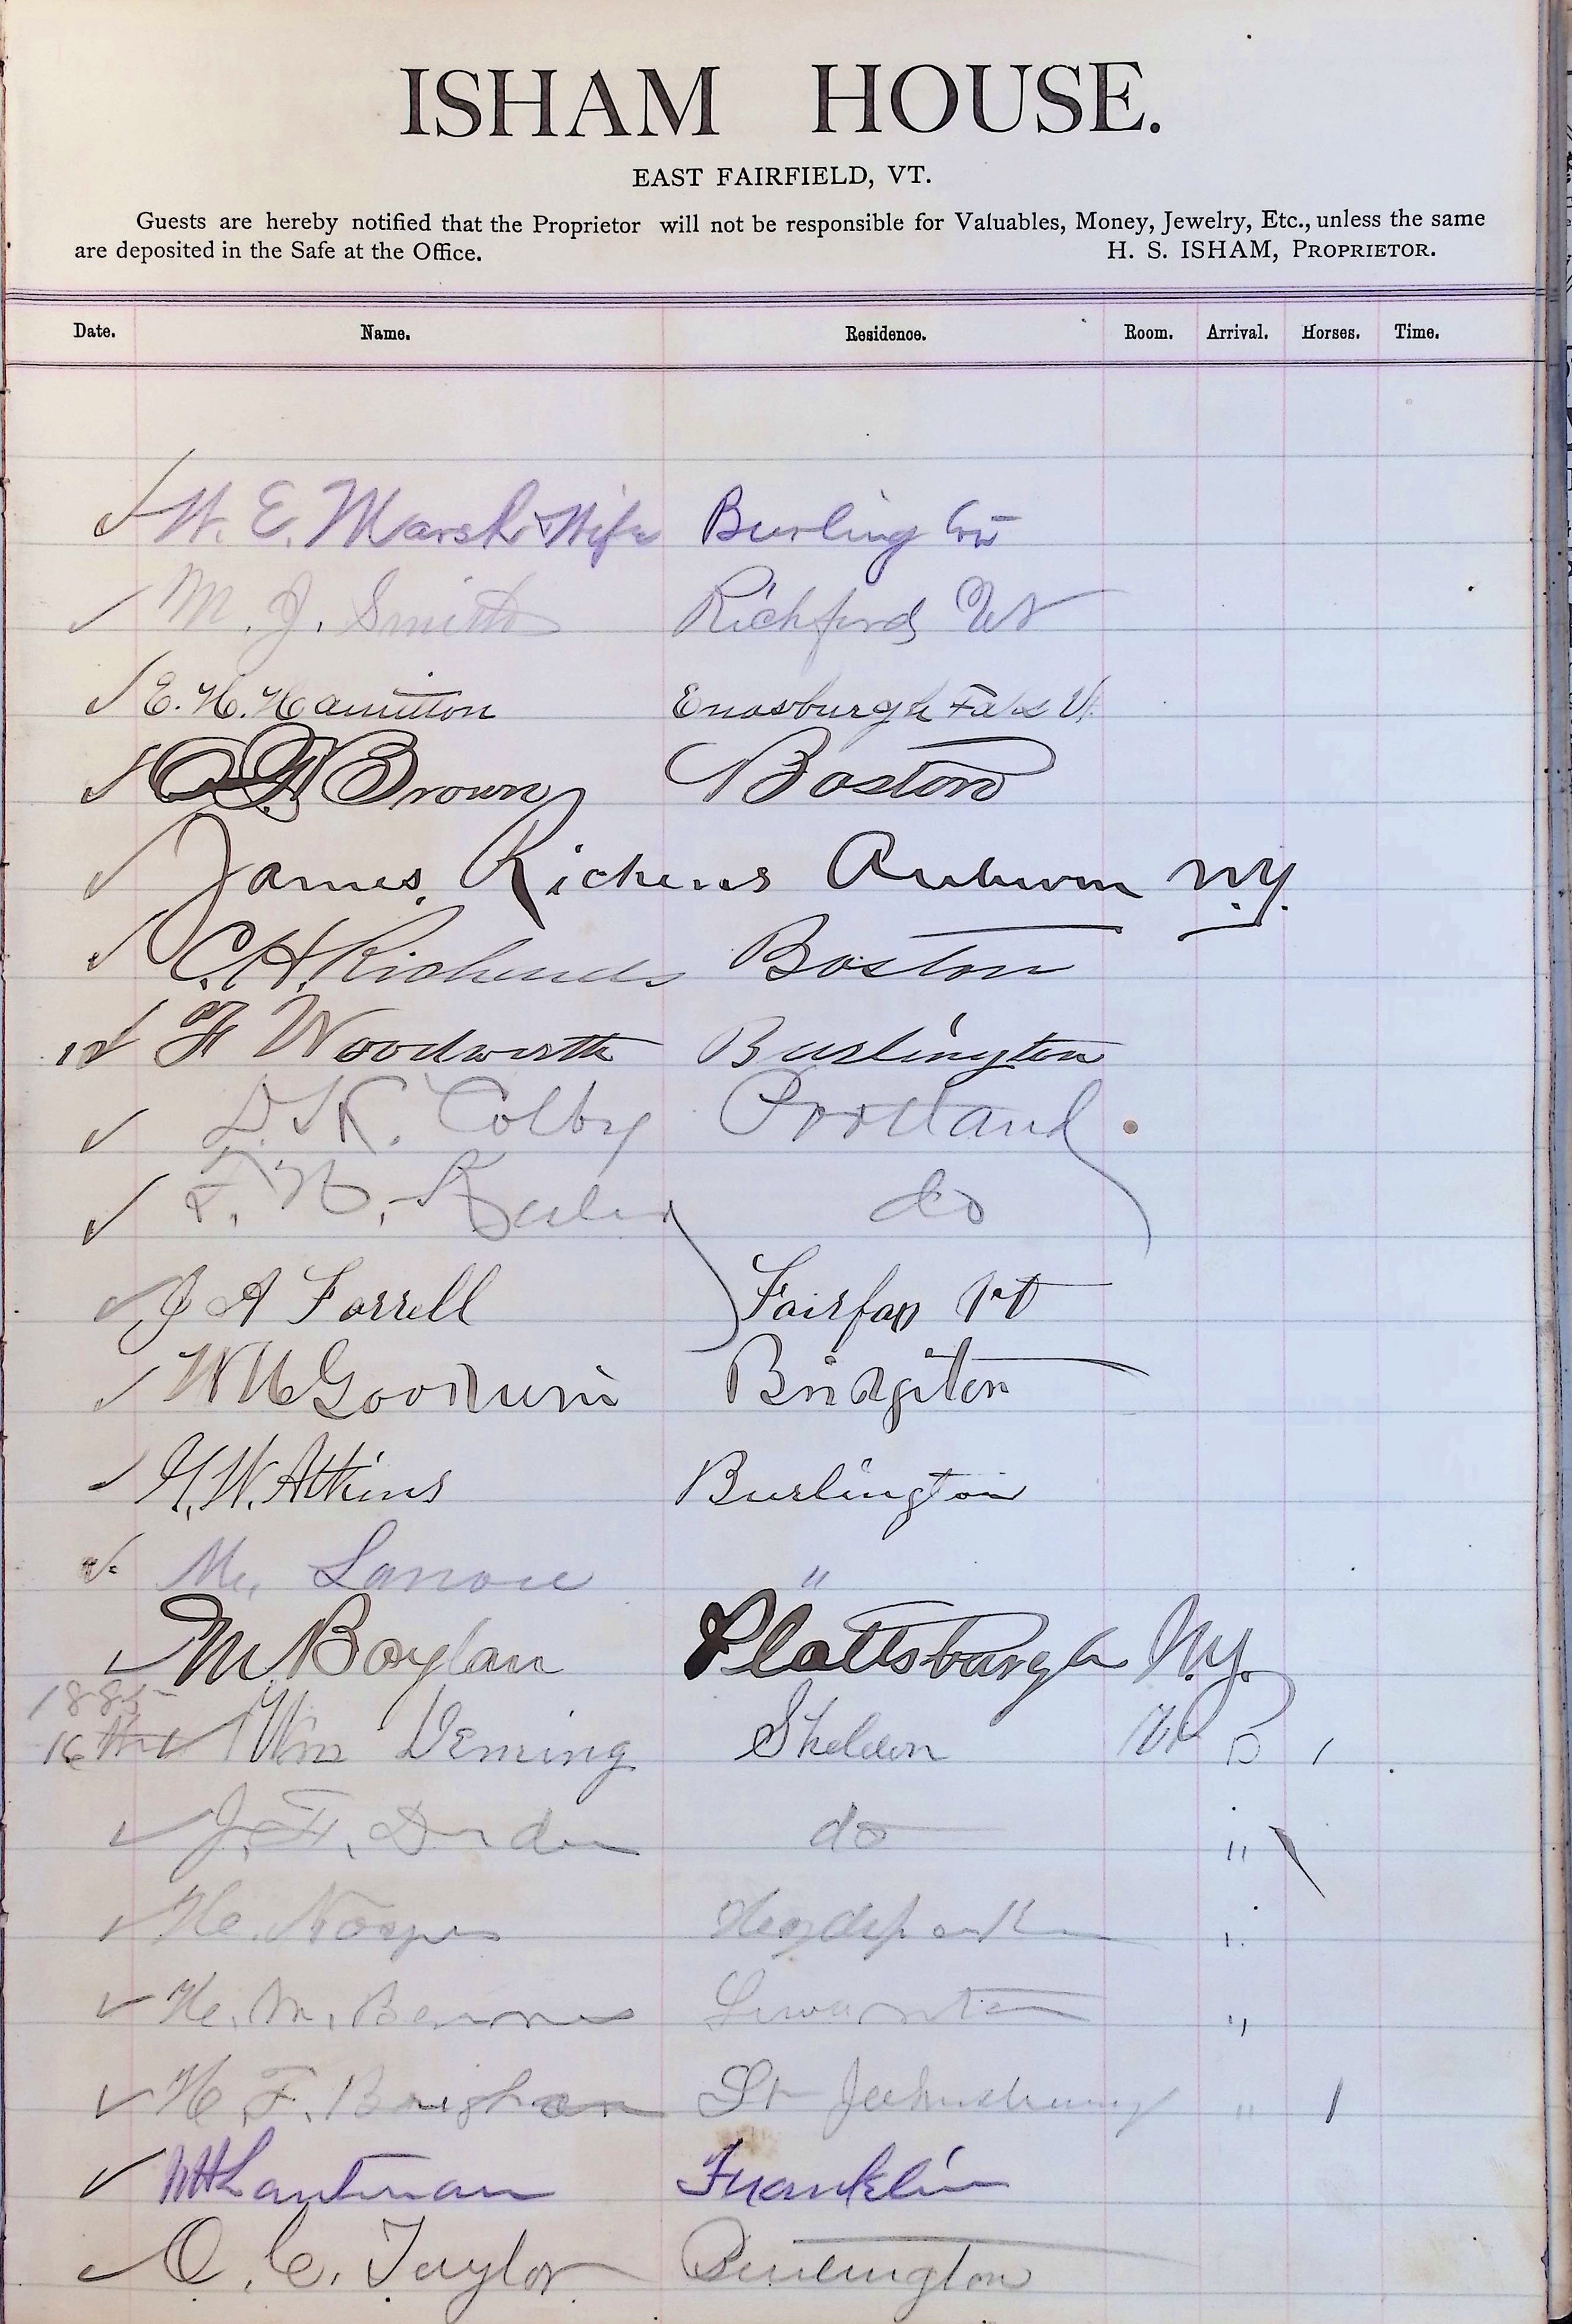 ISHAM HOUSE.
EAST FAIRFIELD, VT.
Guests are hereby notified that the Proprietor will not be responsible for Valuables, Money, Jewelry, Etc., unless the same
are deposited in the Safe at the Office. H. S. ISHAM, PROPRIETOR.
Date. Name. Residence. Room. Arrival. Horses. Time.
W. E. Marsh & Wife Burlington
M. J. Smith Richford Vt
E. H. Hamilton Enosburgh Falls Vt
Brown Boston
James Rickens Auburn N.Y.
C. H. Boston
F Woodworth Burlington
D. K. Colby Portland
F. H. do
J A Farrell Fairfax Vt
W H Goodwin Bridgton
H. W. Atkins Burlington
Mr. "
M Boylan Plattsburgh N.Y.
1885
16 Wm Deming Sheldon Vt B 1
J. F. do "
H. "
H. M. Swanton "
H. F. Brigham St Johnsbury " 1
Lantman Franklin
O. C. Taylor Burlington